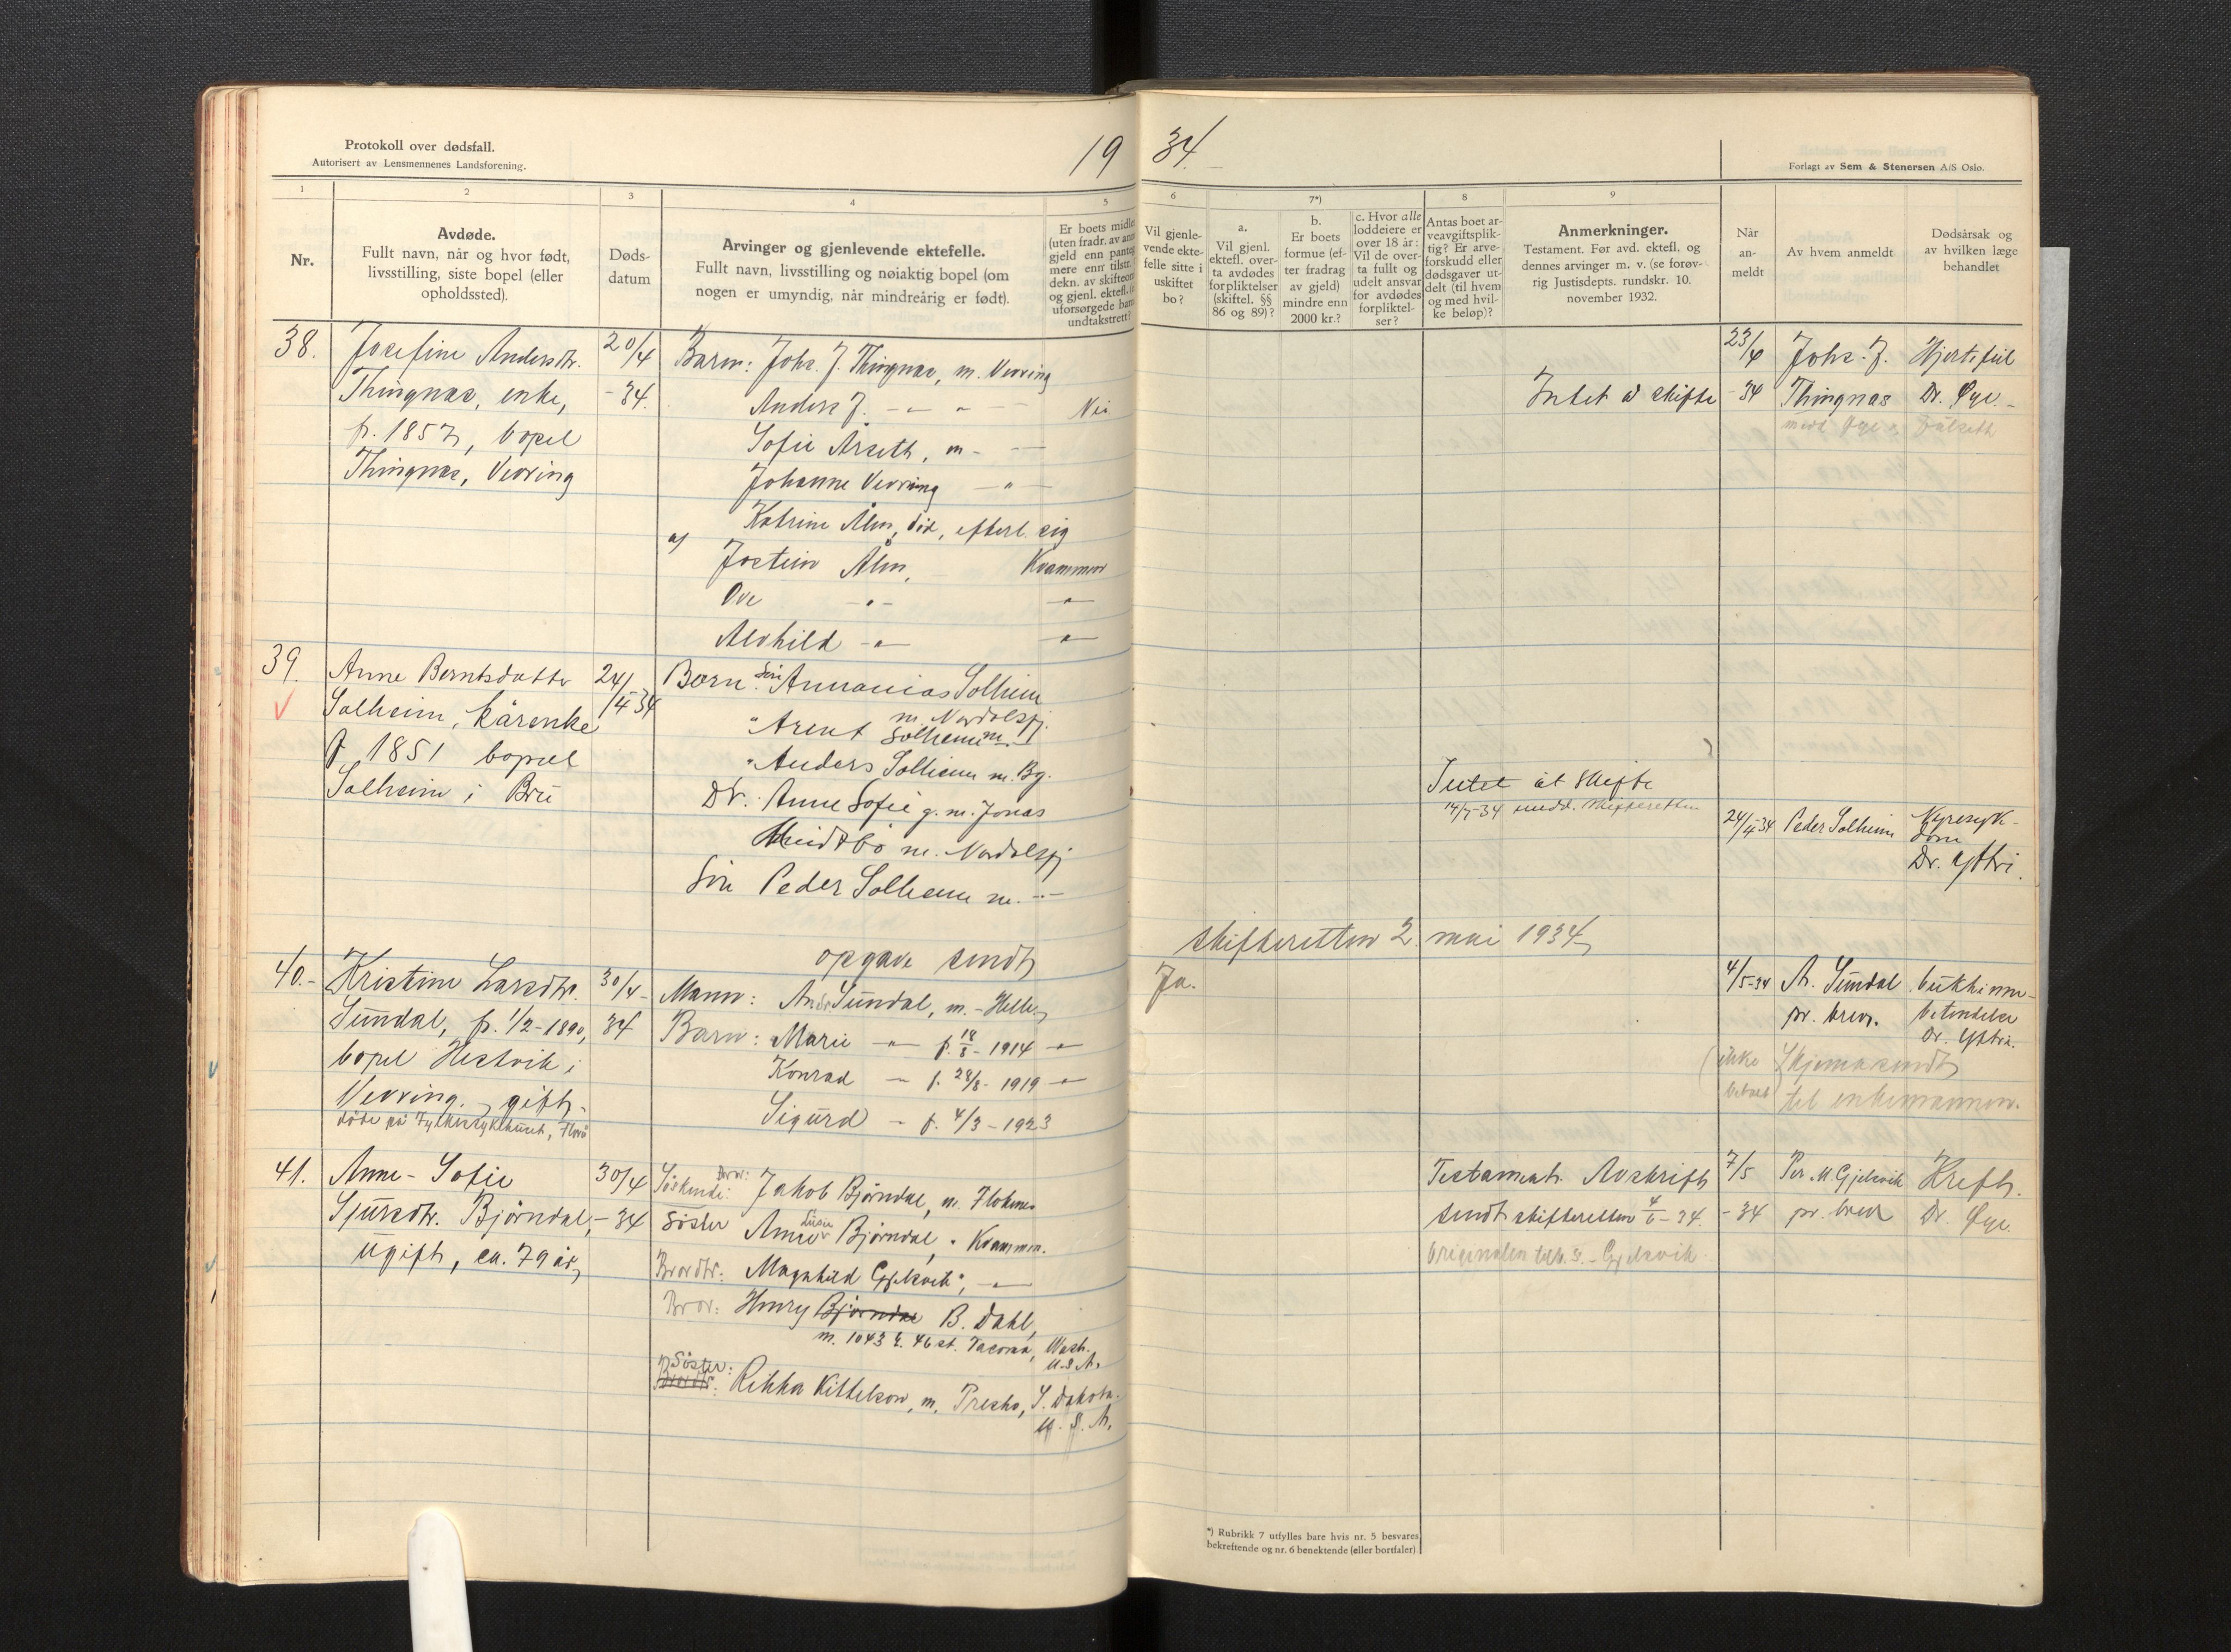 Protokoll over dødsfall.
Autorisert av Lensmennenes Landsforening.
19 34.
Forlagt av Sem & Stenersen A/S Oslo.
1
2
3
4
5
6
7*)
8
9
Nr.
Avdøde.
Fullt navn, når og hvor født,
livsstilling, siste bopel (eller
opholdssted).
Døds-
datum
Arvinger og gjenlevende ektefelle.
Fullt navn, livsstilling og nøiaktig bopel (om
nogen er umyndig, når mindreårig er født).
Er boets midler
(uten fradr. av
gjeld enn
mere enn tilstr.
dekn. av
og gjenl. ektefl.
uforsørgede
undtakstrett?
Vil gjenle-
vende ekte-
felle sitte i
uskiftet
bo?
a.
Vil gjenl.
ektefl. over-
ta avdødes
forpliktelser
(skiftel. §§
86 og 89)?
b.
Er boets
formue (ef-
ter fradrag
av gjeld)
mindre enn
2000 kr.?
c. Hvor alle
loddeiere er
over 18 år:
Vil de over-
ta fullt og
udelt ansvar
for avdødes
forpliktel-
ser?
Antas boet ar-
veavgiftsplik-
tig? Er arve-
forskudd eller
dødsgaver ut-
delt (til hvem
og med hvil-
ke beløp)?
Anmerkninger.
Testament. Før avd. ektefl. og
dennes arvinger m. v. (se forøv-
rig Justisdepts. rundskr. 10.
november 1932.
Når
an-
meldt
Av hvem anmeldt
Dødsårsak og
av hvilken læge
behandlet
38.
Josefine Andersdtr.
Thingnæs, enke,
f. 1857, bopel
Thingnæs, Vevring
20/4
- 34.
Barn: Johs. J. Thingnæs, m. Vevring
Anders J. - " - " -
Nei
Sofie Årseth, m - -
Johanne Vevring - " -
Katrine Alm, død, efterl. sig
a/
Jostein Alm, Kvammen
Ove - " - - " -
Alvhild - " - - " -
Intet å skifte
23/4
- 34
Johs. J.
Thingnæs
Hjertefeil
Dr. Øye.
39.
Anne Berntsdatter
Solheim, kårenke
f. 1851 bopæl
Solheim i Bru
24/
4-34
Børn: Søn Annanias Solheim
m. Nordalsfj.
" Arent Solheim m. -
" Anders Solheim m. Bg.
Dtr. Anne Sofie g. m. Jonas
m. Nordalsfj
Søn Peder Solheim m. - " -
Intet at skifte
14/5-34 medd. skifteretten
24/4-34
Peder Solheim
Nyresyk-
dom
Dr. Yttri.
opgave sendt skifteretten 2. mai 1934
40.-
Kristine Larsdtr.
Sundal, f. 1/2-1890,
bopel Hestvik i
Vevring, gift.
døde på Fylkessykehuset, Florø
30/4-
34
Mann: Andr. Sundal, m. - Helle
Barn: Marie - " - f. 18/8 - 1914 - " -
Konrad - " - f. 28/8 - 1919 - " -
Sigurd - f. 4/3 - 1923
Ja.
4/5-34
A. Sundal
pr. brev.
bukhinne-
betendelse
Dr. Yttri.
(ikke
Skjema sendt
betalt)
til enkemannen.
41.
Anne-Sofie
Sjursdtr. Bjørndal,
ugift, ca. 79 år,
30/4
- 34
Søskende: Bror: Jakob Bjørndal, m. Flokenes
Søster Anne Bjørndal, " Kvammen.
Brordtr: Magnhild Gjelsvik, - " -
Bror: Henry Bjørndal B. Dahl,
m. 1043 E. 46 st. Tacoma, Wash.
U.S.A.
Søster:
Brordtr: Rikka Kittelson, m. Presho, S. Dakota.
U. S. A.
Testament. Avskrift
sendt skifteretten 4/6 - 34.
Originalen tilb. s. - Gjelsvik
7/5
- 34
Per M. Gjelsvik
pr. brev
Kreft.
Dr. Øye.
*) Rubrikk 7 utfylles bare hvis nr. 5 besvares
bekreftende og nr. 6 benektende (eller bortfaler)